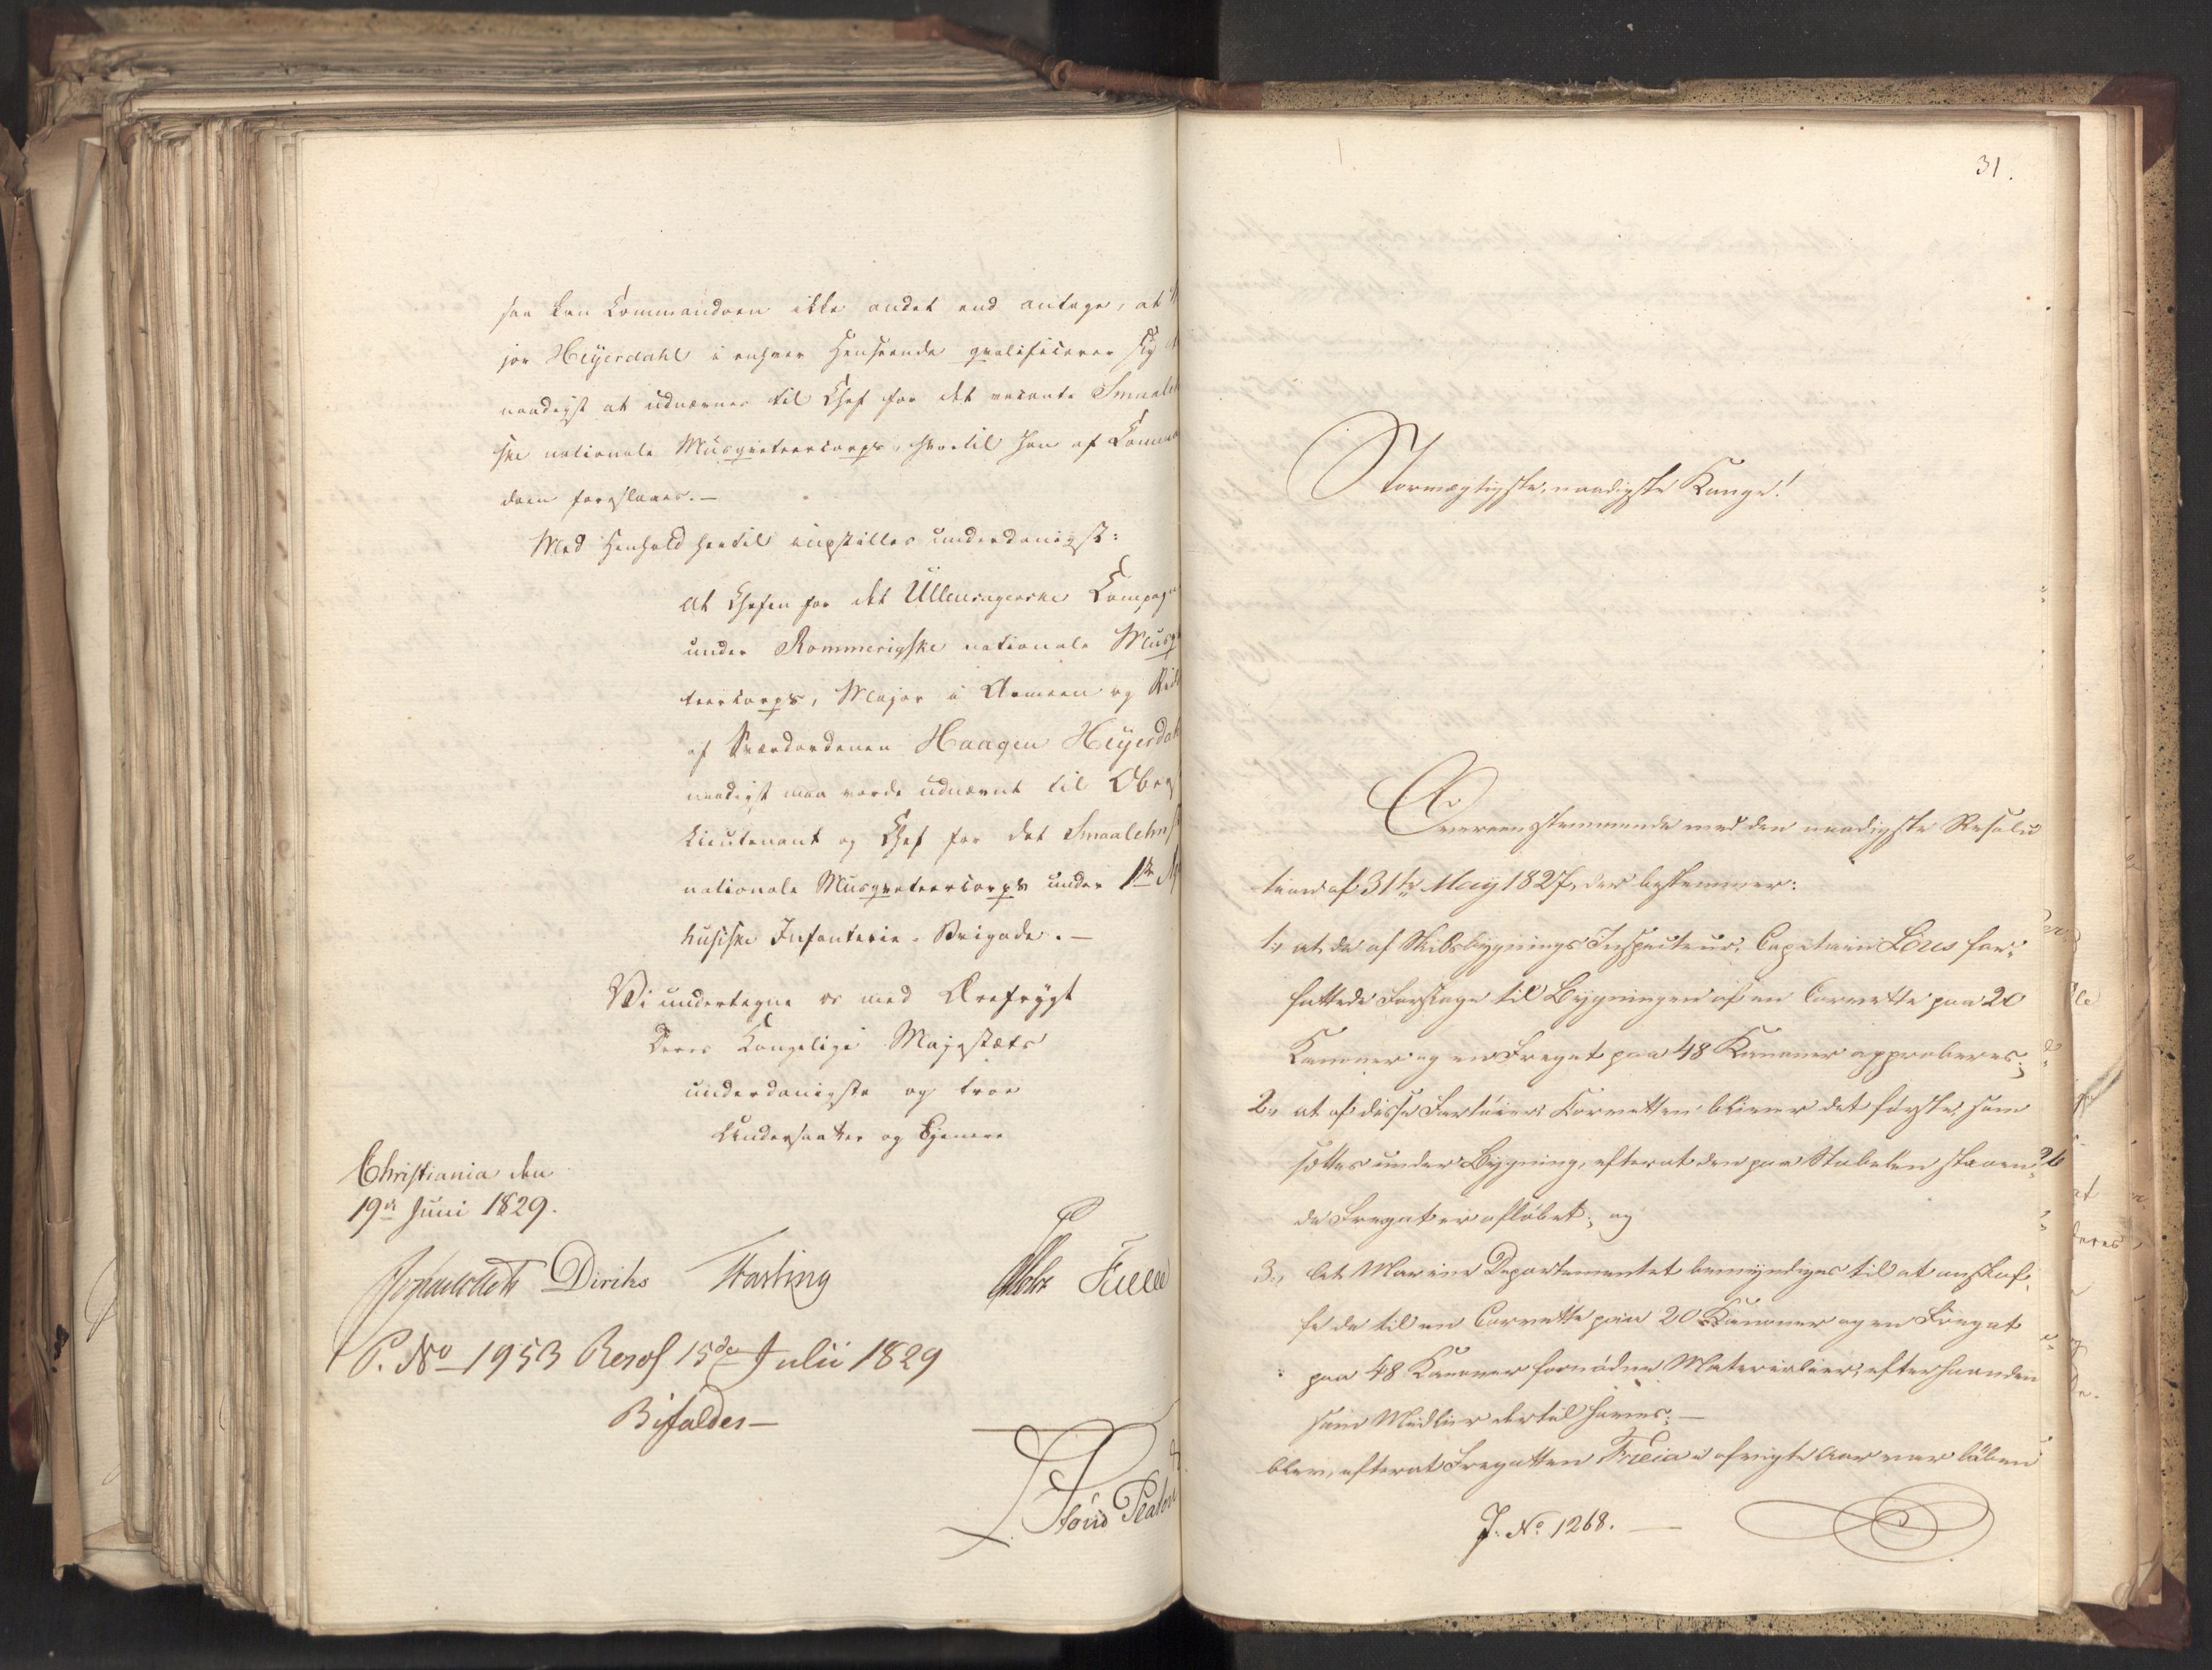 saa kan Commandoen ikke andet end antage, at
jor Heyerdahl i enhver Henseende qvalificerer sig
naadigst at udnævnes til Chef for det vacante Smaaleh
ske nationale Musqveteercorps, hvortil han af Comman
doen foreslaaes.—
Med Henhold hertil indstilles underdanigst:
At Chefen for det Ullensagerske Compagn
under Rommerigske nationale Musqv
teercorps, Major i Armeen og Ridd
af Sværdordenen Haagen Heyerdah
naadigst maa vorde udnævnt til Obrist
lieutenant og Chef for det Smaalehnsk
nationale Musqveteercorps under 1ste
husiske Infanterie-Brigade.—
Vi undertegne os med Ærefrygt
Deres Kongelige Majestæts
underdanigste og troe
Undersaatter og Tjenere
Christiania den
19de Juni 1829.
Diriks Fasting
P. No 1953 Resol 15de Julii 1829
Bifaldes—
31.
Stormægtigste, naadigste Konge!
Overeensstemmende med den naadigste Resolu
tion af 31te May 1827, der bestemmer:
1, at de af Skibsbygnings Inspecteur, Capitain Lous for-
fattede Forslage til Bygningen af en Corvette paa 20
Kanoner og en Fregat paa 48 Kanoner approberes;
2, at af disse Fartöier Korvetten bliver det förste, som
sættes under Bygning, efterat den paa Stabelen staaen-
de Fregat er aflöbet; og
3, At Marine Departementet bemyndiges til at anskaf-
fe de til en Corvette paa 20 Kanoner og en Fregat
paa 48 Kanoner fornödne Materialier, efterhaanden
som Midler dertil haves;—
blev, efterat Fregatten Freia i afvigte Aar var löben
J. No 1268.—